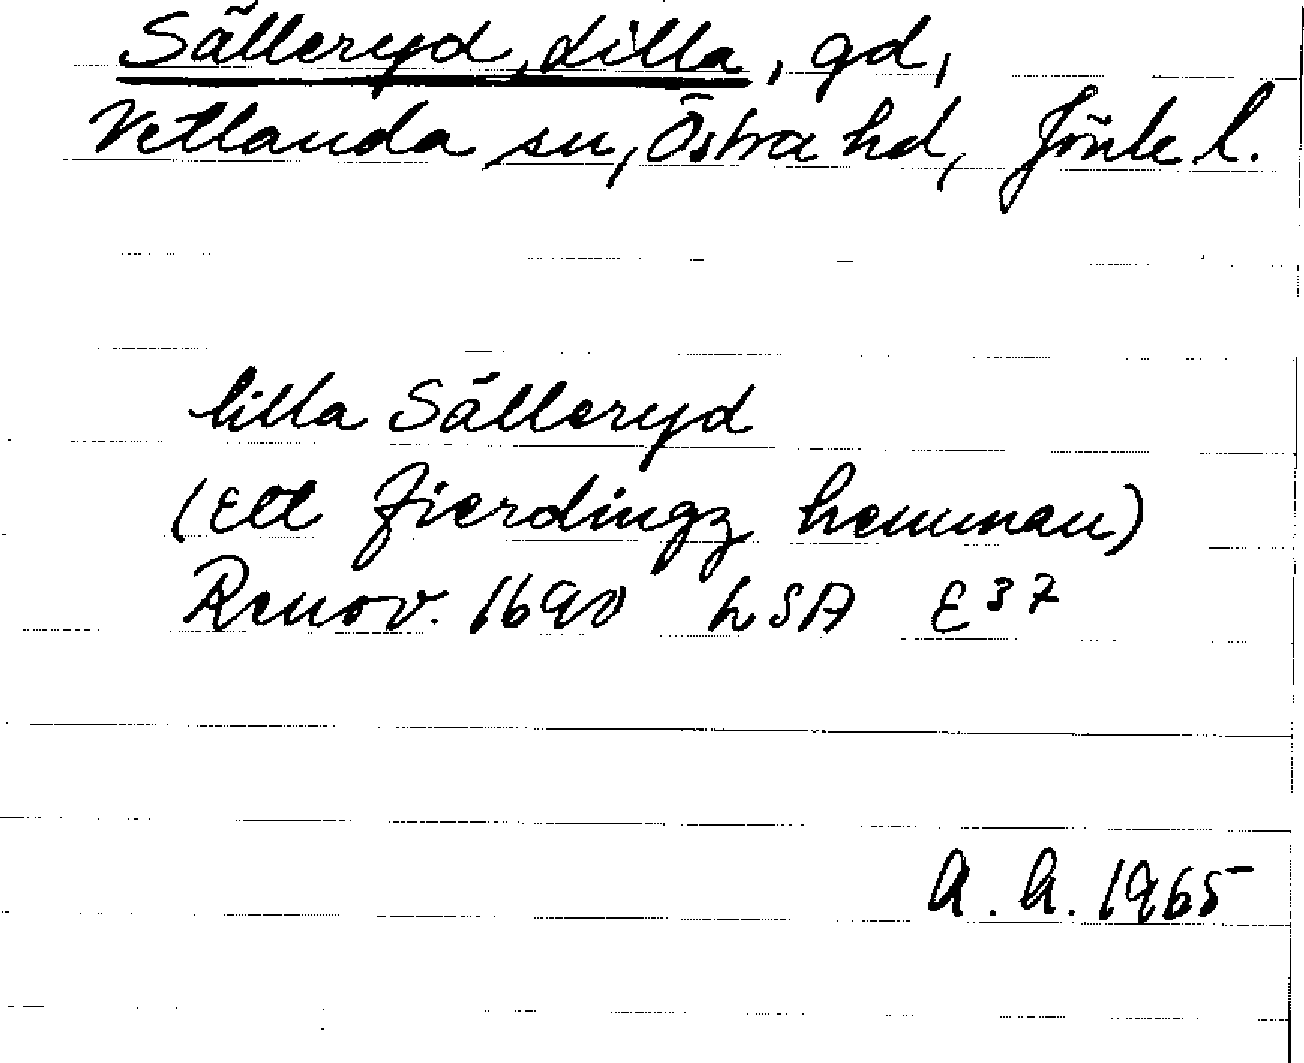 Sälleryd, Lilla, gd,
Vetlanda sn, Östra hd, Jönk l.
lilla Sälleryd
(Ett fierdingz hemman)
Renov. 1690 LSA E 37
A. A. 1965